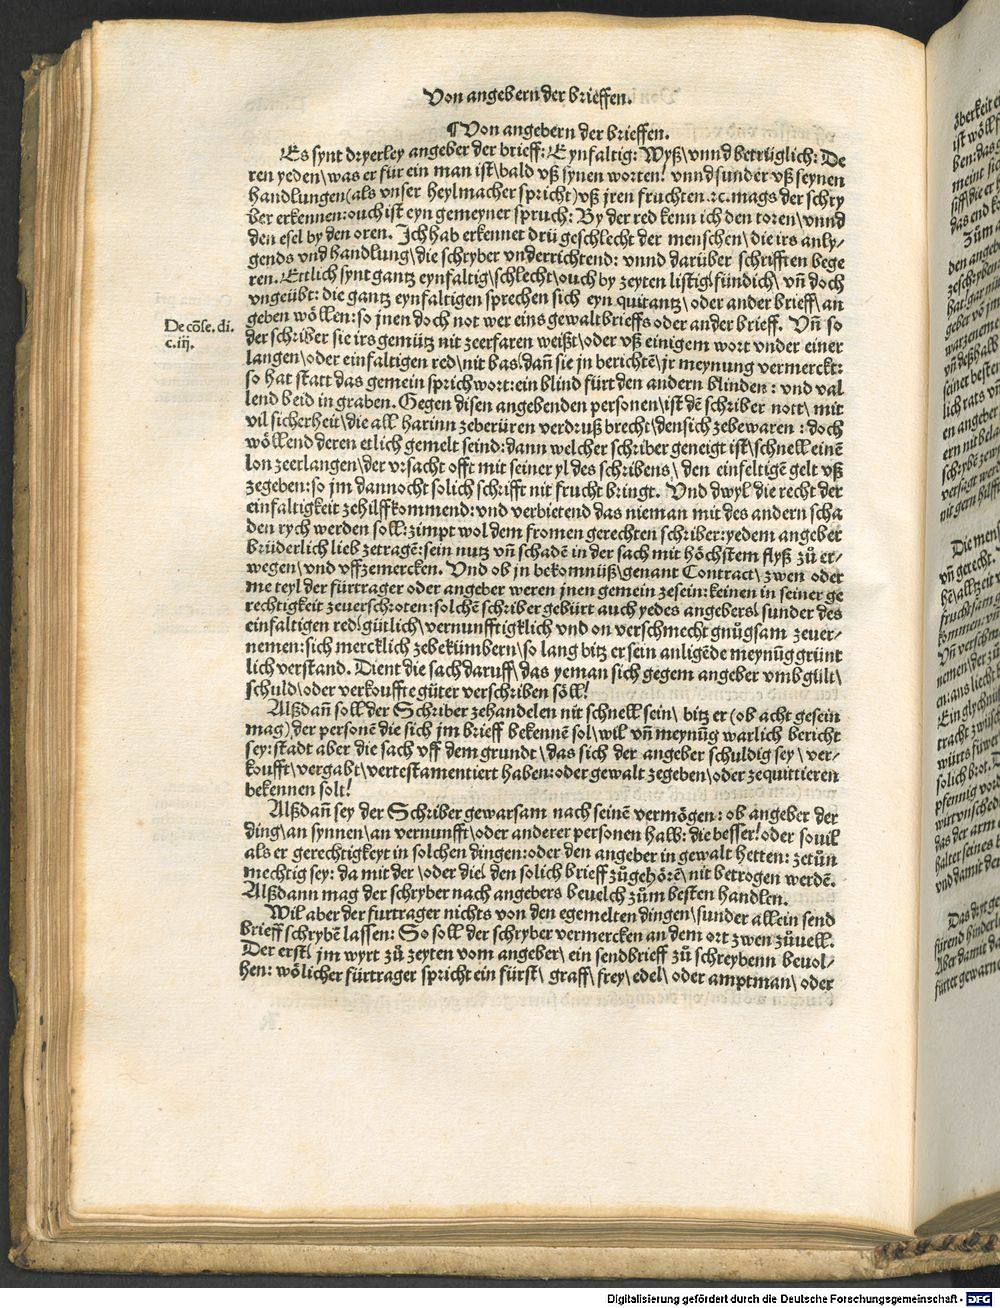 Von angebern der brieffen.
¶Von angebern der brieffen.
Es synt dryerley angeber der brieff: Eynfaltig: Wyß\ vnnd betrüglich: De
ren yeden\ was er für ein man ist\ bald vß synen worten! vnnd sunder vß seynen
handlungen (als vnser heylmacher spricht) vß jren fruchten .ꝛc. mags der schry
ber erkennen: ouch ist eyn gemeyner spruch: By der red kenn ich den toren\ vnnd
den esel by den oren. Ich hab erkennet drü geschlecht der menschen\ die irs anly⸗
gends vnd handlung\ die schryber vnderrichtend: vnnd darüber schrifften bege
ren. Ettlich synt gantz eynfaltig\ schlecht\ ouch by zeyten listig\ fündich\ vn̄ doch
vngeübt: die gantz eynfaltigen sprechen sich eyn quitantz\ oder ander brieff\ an
geben wöllen: so jnen doch not wer eins gewaltbrieffs oder ander brieff. Vn̄ so
De cōse. di.
c.iij.
der schriber sie irs gemütz nit zeerfaren weißt\ oder vß einigem wort vnder einer
langen\ oder einfaltigen red\ nit bas\ dan̄ sie jn berichtē\ jr meynung vermerckt:
so hat statt das gemein sprichwort: ein blind fürt den andern blinden: vnd val
lend beid in graben. Gegen disen angebenden personen\ ist dē schriber nott\ mit
vil sicherheit\ die all harinn zeberüren verdruß brecht\ den sich zebewaren: doch
wöllend deren etlich gemelt seind: dann welcher schriber geneigt ist\ schnell einē
lon zeerlangen\ der vrsacht offt mit seiner yl des schribens\ den einfeltigē gelt vß
zegeben: so jm dannocht solich schrifft nit frucht bringt. Vnd dwyl die recht der
einfaltigkeit zehilff kommend: vnd verbietend das nieman mit des andern scha
den rych werden soll: zimpt wol dem fromen gerechten schriber: yedem angeber
brüderlich lieb zetragē: sein nutz vn̄ schadē in der sach mit höchstem flyß zů er⸗
wegen\ vnd vffzemercken. Vnd ob jn bekomnüß\ genant Contract\ zwen oder
me teyl der fürtrager oder angeber weren jnen gemein zesein: keinen in seiner ge
rechtigkeit zeuerschroten: solchē schriber gebürt auch yedes angebers\ sunder des
einfaltigen red\ gütlich\ vernunfftigklich vnd on verschmecht gnůgsam zeuer⸗
nemen: sich mercklich zebekümbern\ so lang bitz er sein anligēde meynūg grünt
lich verstand. Dient die sach daruff\ das yeman sich gegem angeber vmb gült\
schuld\ oder verkouffte güter verschriben söll!
Alßdan̄ soll der Schriber zehandelen nit schnell sein\ bitz er (ob acht gesein
mag) der personē die sich jm brieff bekennē sol\ wil vn̄ meynūg warlich bericht
sey: stadt aber die sach vff dem grundt\ das sich der angeber schuldig sey\ ver⸗
koufft\ vergabt\ vertestamentiert haben: oder gewalt zegeben\ oder zequittieren
bekennen solt!
Alßdan̄ sey der Schriber gewarsam nach seinē vermögen: ob angeber der
ding\ an synnen\ an vernunfft\ oder anderer personen halb: die besser! oder souil
als er gerechtigkeyt in solchen dingen: oder den angeber in gewalt hetten: zetůn
mechtig sey: da mit der\ oder die\ den solich brieff zůgehörē\ nit betrogen werdē.
Alßdann mag der schryber nach angebers beuelch zům besten handlen.
Wil aber der furtrager nichts von den egemelten dingen\ sunder allein send
brieff schrybē lassen: So soll der schryber vermercken an dem ort zwen zůuell.
Der erst\ jm wyrt zů zeyten vom angeber\ ein sendbrieff zů schreybenn beuol⸗
hen: wölicher fürtrager spricht ein fürst\ graff\ frey\ edel\ oder amptman\ oder
Digitalisierung gefördert durch die Deutsche Forschungsgemeinschaft - DFG